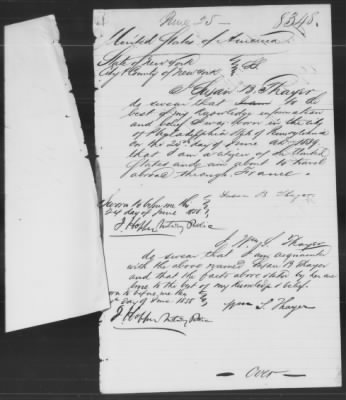 June 25 — 8348.
United States of America
State of New York
City & County of New York } SS.
I Susan B. Thayer
do swear that to the
best of my knowledge information
and belief I was born in the City
of Philadelphia State of Pennsylvania
on the day of June AD 1839
that I am a citizen of the United
States and am about to travel
abroad through France.
Sworn to before me this Susan B Thayer
24 day of June 1858
J Hopper Notary Public
I Wm S. Thayer
do swear that I am acquainted
with the above named Susan B Thayer
and that the facts above stated by her are
true to the best of my knowledge & belief.
Sworn to before me this
day of June 1858 Wm S. Thayer
J Hopper Notary Public
— Over —